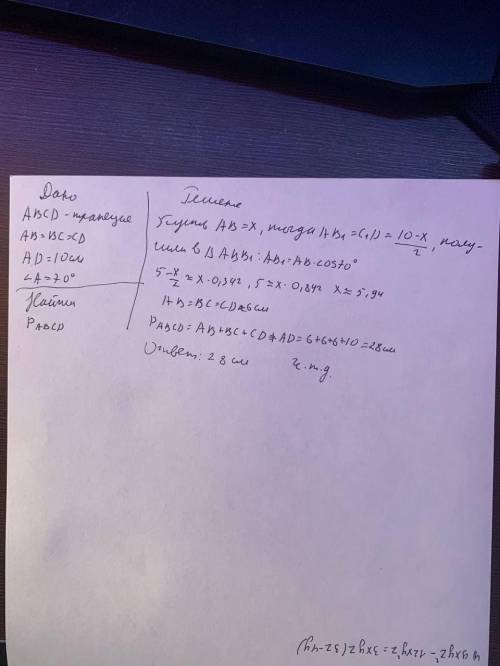 Дано
ABCD - трапеция
AB=BC=CD
AD=10см
∠A=70°
Найти
P ABCD
Решение
Пусть AB=x, тогда AB₁=C₁D=(10-x)/2, полу-
чили в Δ ABB₁: AB₁=AB·cos70°
5-x/2≈x·0,342, 5≈x·0,842 x≈5,94
AB=BC=CD≈6см
P ABCD=AB+BC+CD+AD=6+6+6+10=28см
Ответ: 28см ч.т.д.
12xy²=3xy2(3z-4y)